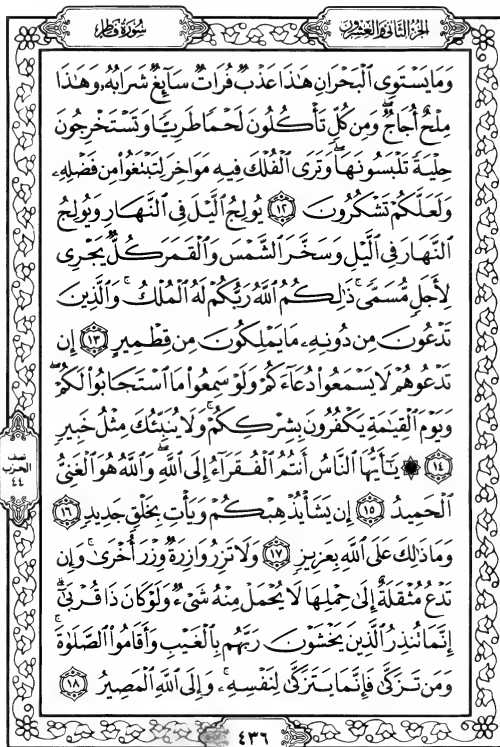 الجزء الثاني والعشرون
سورة فاطر
وَمَا يَسْتَوِي الْبَحْرَانِ هَٰذَا عَذْبٌ فُرَاتٌ سَآئِغٌ شَرَابُهُۥ وَهَٰذَا
مِلْحٌ أُجَاجٌ ۖ وَمِن كُلٍّ تَأْكُلُونَ لَحْمًا طَرِيًّا وَتَسْتَخْرِجُونَ
حِلْيَةً تَلْبَسُونَهَا ۖ وَتَرَى الْفُلْكَ فِيهِ مَوَاخِرَ لِتَبْتَغُوا۟ مِن فَضْلِهِۦ
وَلَعَلَّكُمْ تَشْكُرُونَ ١٢ يُولِجُ الَّيْلَ فِى النَّهَارِ وَيُولِجُ
النَّهَارَ فِى الَّيْلِ وَسَخَّرَ الشَّمْسَ وَالْقَمَرَ كُلٌّ يَجْرِى
لِأَجَلٍ مُّسَمًّى ۚ ذَٰلِكُمُ اللَّهُ رَبُّكُمْ لَهُ الْمُلْكُ ۚ وَالَّذِينَ
تَدْعُونَ مِن دُونِهِۦ مَا يَمْلِكُونَ مِن قِطْمِيرٍ ١٣ إِن
تَدْعُوهُمْ لَا يَسْمَعُوا۟ دُعَآءَكُمْ وَلَوْ سَمِعُوا۟ مَا اسْتَجَابُوا۟ لَكُمْ ۖ
وَيَوْمَ الْقِيَٰمَةِ يَكْفُرُونَ بِشِرْكِكُمْ ۚ وَلَا يُنَبِّئُكَ مِثْلُ خَبِيرٍ
١٤ ۞ يَٰٓأَيُّهَا النَّاسُ أَنتُمُ الْفُقَرَآءُ إِلَى اللَّهِ ۖ وَاللَّهُ هُوَ الْغَنِىُّ
الْحَمِيدُ ١٥ إِن يَشَأْ يُذْهِبْكُمْ وَيَأْتِ بِخَلْقٍ جَدِيدٍ ١٦
وَمَا ذَٰلِكَ عَلَى اللَّهِ بِعَزِيزٍ ١٧ وَلَا تَزِرُ وَازِرَةٌ وِزْرَ أُخْرَىٰ ۚ وَإِن
تَدْعُ مُثْقَلَةٌ إِلَىٰ حِمْلِهَا لَا يُحْمَلْ مِنْهُ شَىْءٌ وَلَوْ كَانَ ذَا قُرْبَىٰٓ ۗ
إِنَّمَا تُنذِرُ الَّذِينَ يَخْشَوْنَ رَبَّهُم بِالْغَيْبِ وَأَقَامُوا۟ الصَّلَوٰةَ ۚ
وَمَن تَزَكَّىٰ فَإِنَّمَا يَتَزَكَّىٰ لِنَفْسِهِۦ ۚ وَإِلَى اللَّهِ الْمَصِيرُ ١٨
نصف
الحزب
٤٤
٤٣٦